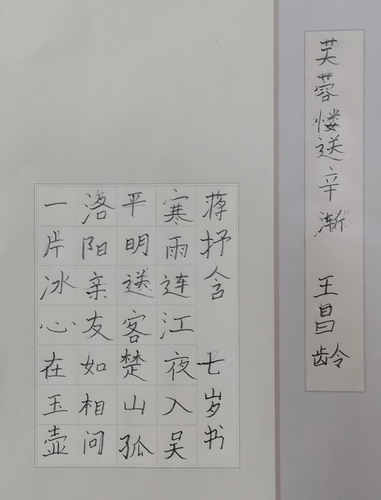 芙蓉楼送辛渐 王昌龄
蒋抒含 七岁书
寒雨连江夜入吴
平明送客楚山孤
洛阳亲友如相问
一片冰心在玉壶